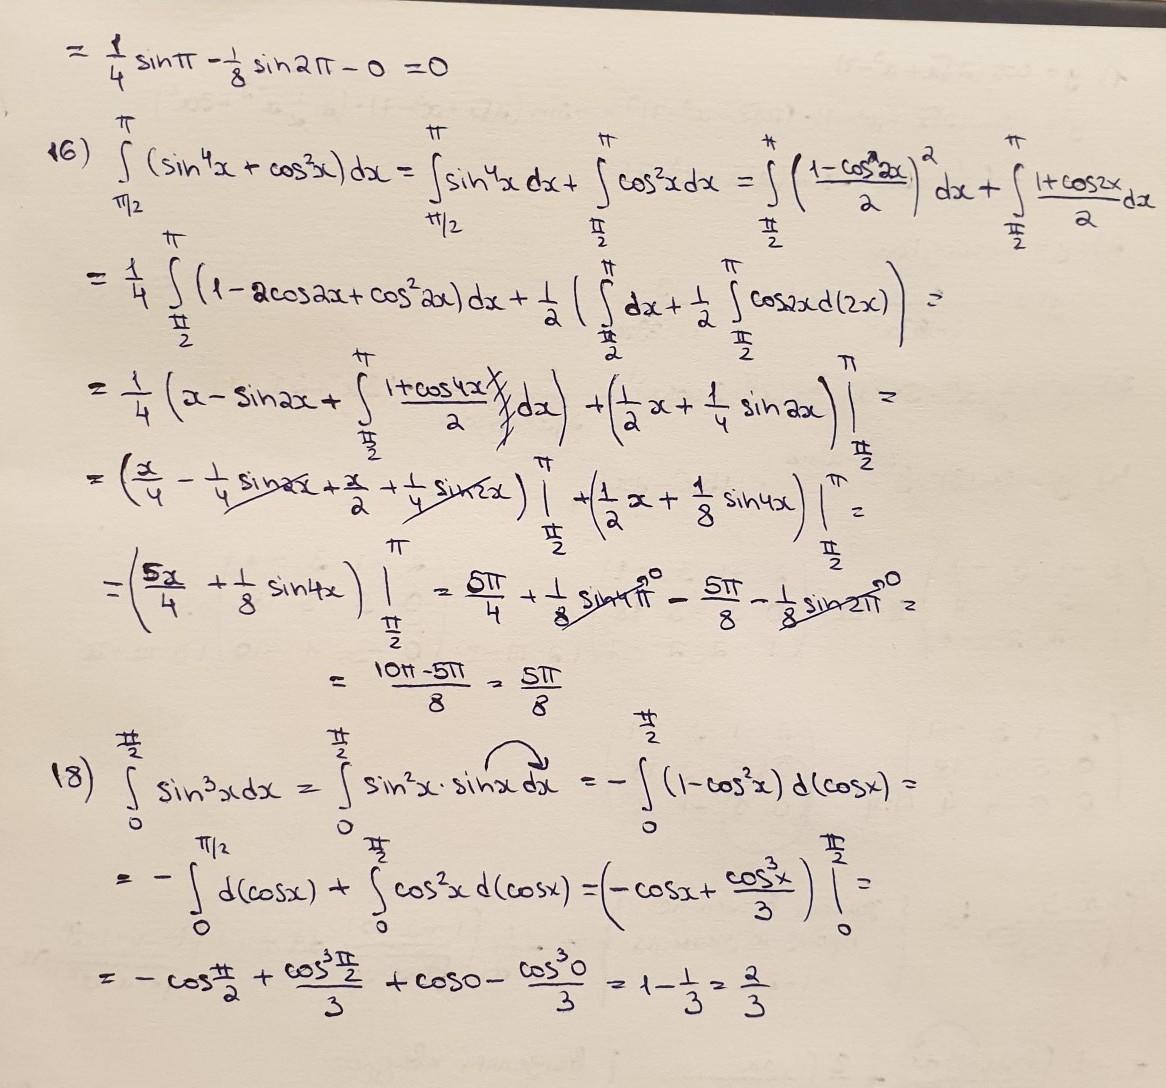 = 1/4 sinπ - 1/8 sin2π - 0 = 0
16) ∫_{π/2}^{π} (sin⁴x + cos²x) dx = ∫_{π/2}^{π} sin⁴x dx + ∫_{π/2}^{π} cos²x dx = ∫_{π/2}^{π} ((1-cos2x)/2)² dx + ∫_{π/2}^{π} (1+cos2x)/2 dx
= 1/4 ∫_{π/2}^{π} (1-2cos2x+cos²2x) dx + 1/2 (∫_{π/2}^{π} dx + 1/2 ∫_{π/2}^{π} cos2x d(2x)) =
= 1/4 (x - sin2x + ∫_{π/2}^{π} (1+cos4x)/2 dx) + (1/2 x + 1/4 sin2x) |_{π/2}^{π} =
= (x/4 - 1/4 sin2x + x/2 + 1/4 sin2x) |_{π/2}^{π} + (1/2 x + 1/8 sin4x) |_{π/2}^{π} =
= (5x/4 + 1/8 sin4x) |_{π/2}^{π} = 5π/4 + 1/8 sin4π⁰ - 5π/8 - 1/8 sin2π⁰ =
= (10π-5π)/8 = 5π/8
18) ∫_{0}^{π/2} sin³x dx = ∫_{0}^{π/2} sin²x · sinx dx = - ∫_{0}^{π/2} (1-cos²x) d(cosx) =
= - ∫_{0}^{π/2} d(cosx) + ∫_{0}^{π/2} cos²x d(cosx) = (-cosx + cos³x/3) |_{0}^{π/2} =
= - cos π/2 + (cos³ π/2)/3 + cos0 - cos³0/3 = 1 - 1/3 = 2/3